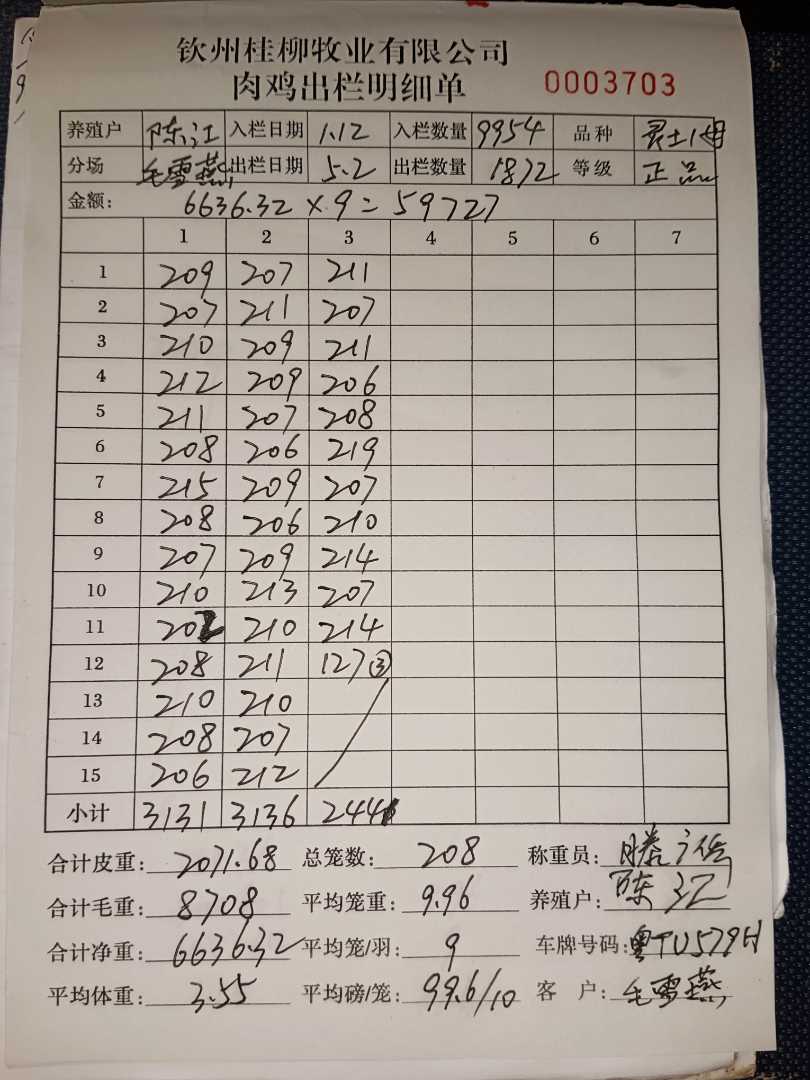 钦州桂柳牧业有限公司
肉鸡出栏明细单 0003703
养殖户 陈江 入栏日期 1.12 入栏数量 9954 品种 灵土1母
分场 毛雪燕 出栏日期 5.2 出栏数量 1872 等级 正品
金额: 6636.32 × 9 = 59727
1 2 3 4 5 6 7
1 209 207 211
2 207 211 207
3 210 209 211
4 212 209 206
5 211 207 208
6 208 206 219
7 215 209 207
8 208 206 210
9 207 209 214
10 210 213 207
11 202 210 214
12 208 211 127③
13 210 210
14 208 207
15 206 212
小计 3131 3136 2441
合计皮重: 2071.68 总笼数: 208 称重员:
合计毛重: 8708 平均笼重: 9.96 养殖户: 陈江
合计净重: 6636.32 平均笼/羽: 9 车牌号码: 粤TU579H
平均体重: 3.55 平均磅/笼: 99.6/10 客 户: 毛雪燕